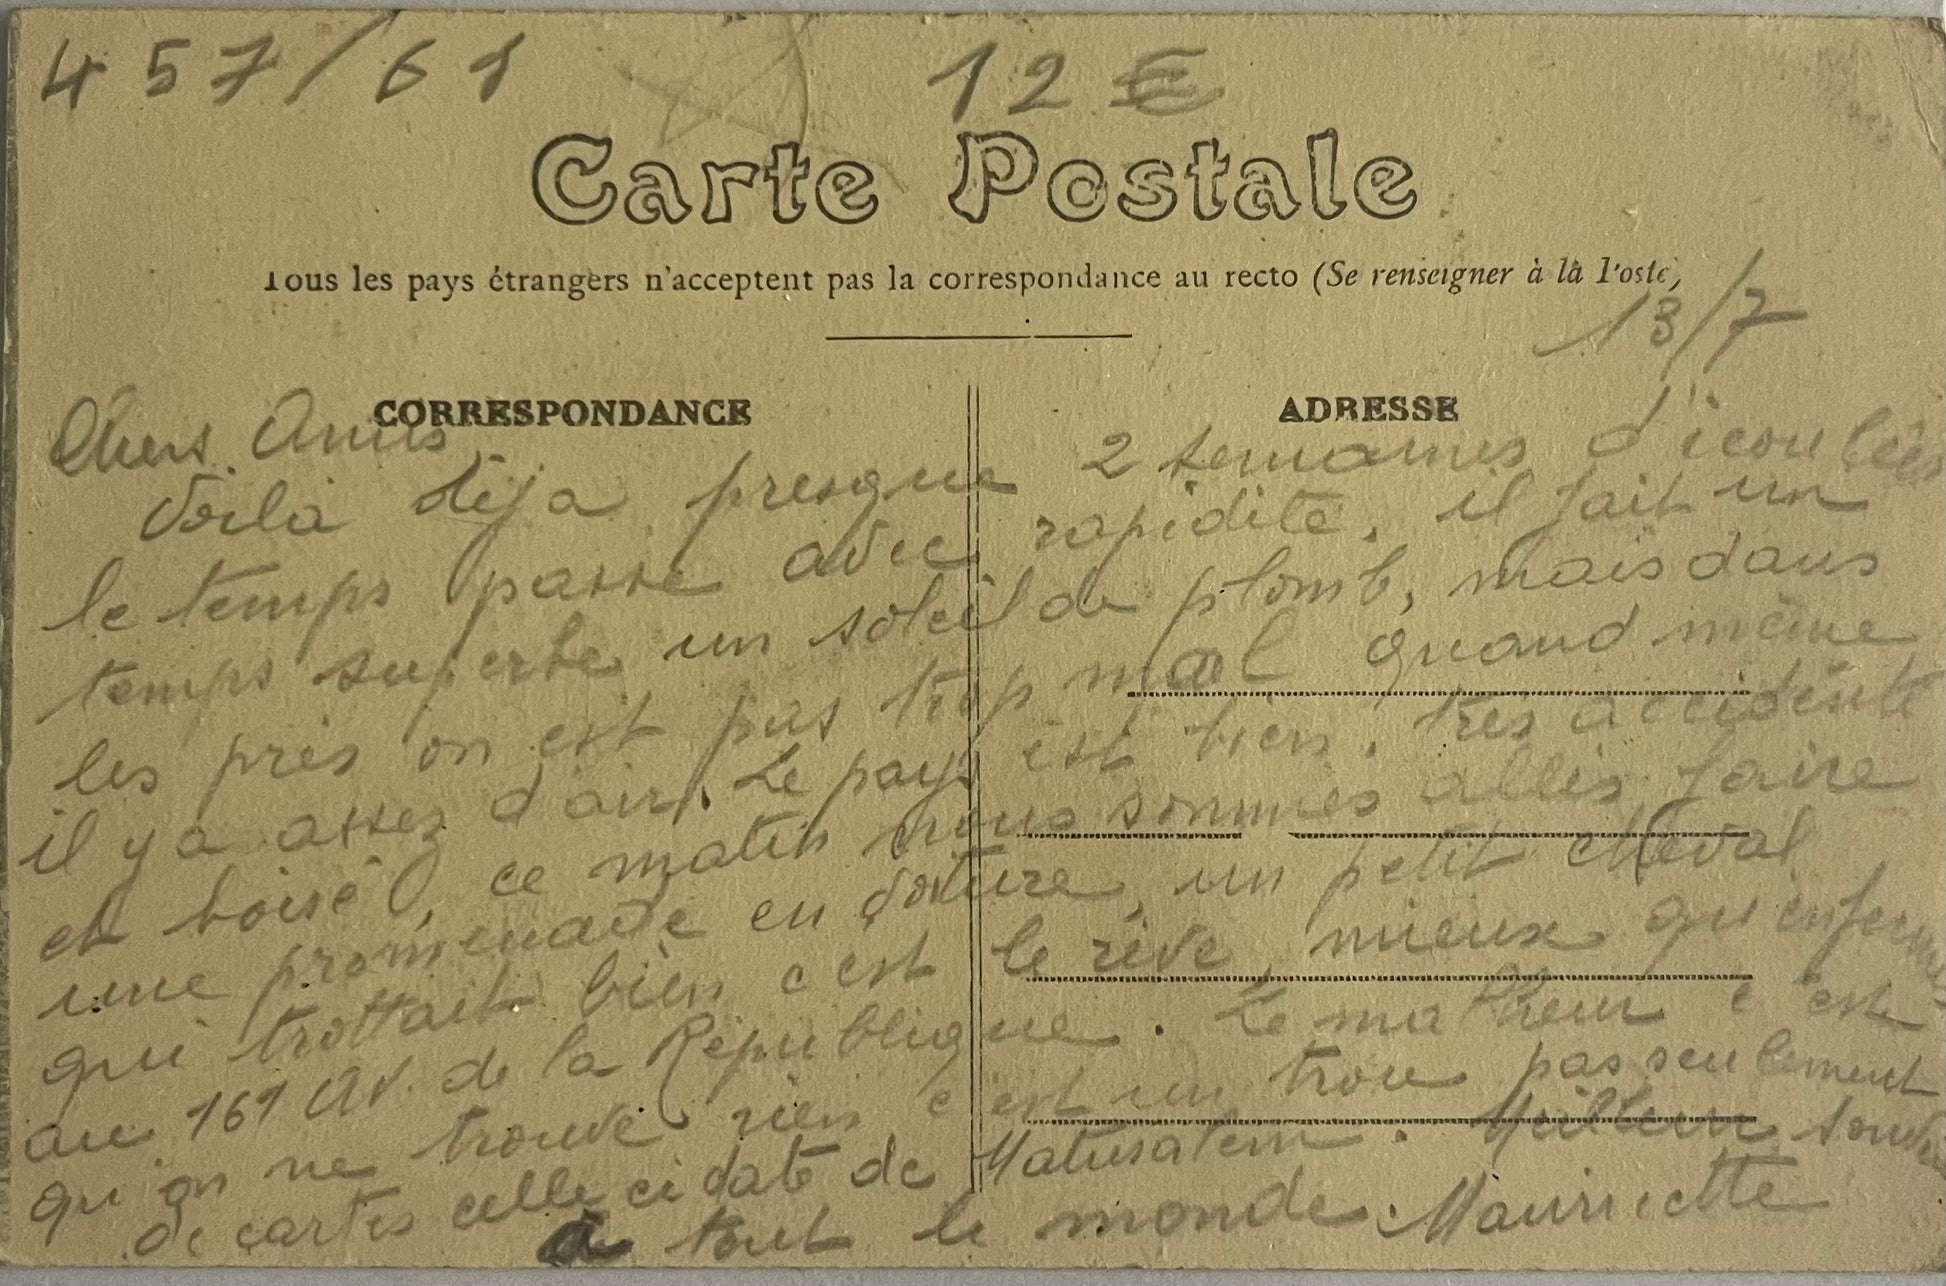 457/61 12€
Carte Postale
Tous les pays étrangers n'acceptent pas la correspondance au recto (Se renseigner à là Poste)
13/7
CORRESPONDANCE ADRESSE
Chers Amis
Voilà déja presque 2 semaines d'écoulées
le temps passe avec rapidité, il fait un
temps superbe un soleil de plomb, mais dans
les prés on est pas trop mal quand même
il y a assez d'air. Le pays est bien, très accidenté
et boisé, ce matin nous sommes allés faire
une promenade en voiture, un petit cheval
qui trottait bien c'est le rêve, mieux qu'enfermés
au 161 Av. de la République. Le malheur c'est
qu'on ne trouve rien c'est un trou pas seulement
de cartes celle ci date de Matusalem.
à tout le monde. Mauricette